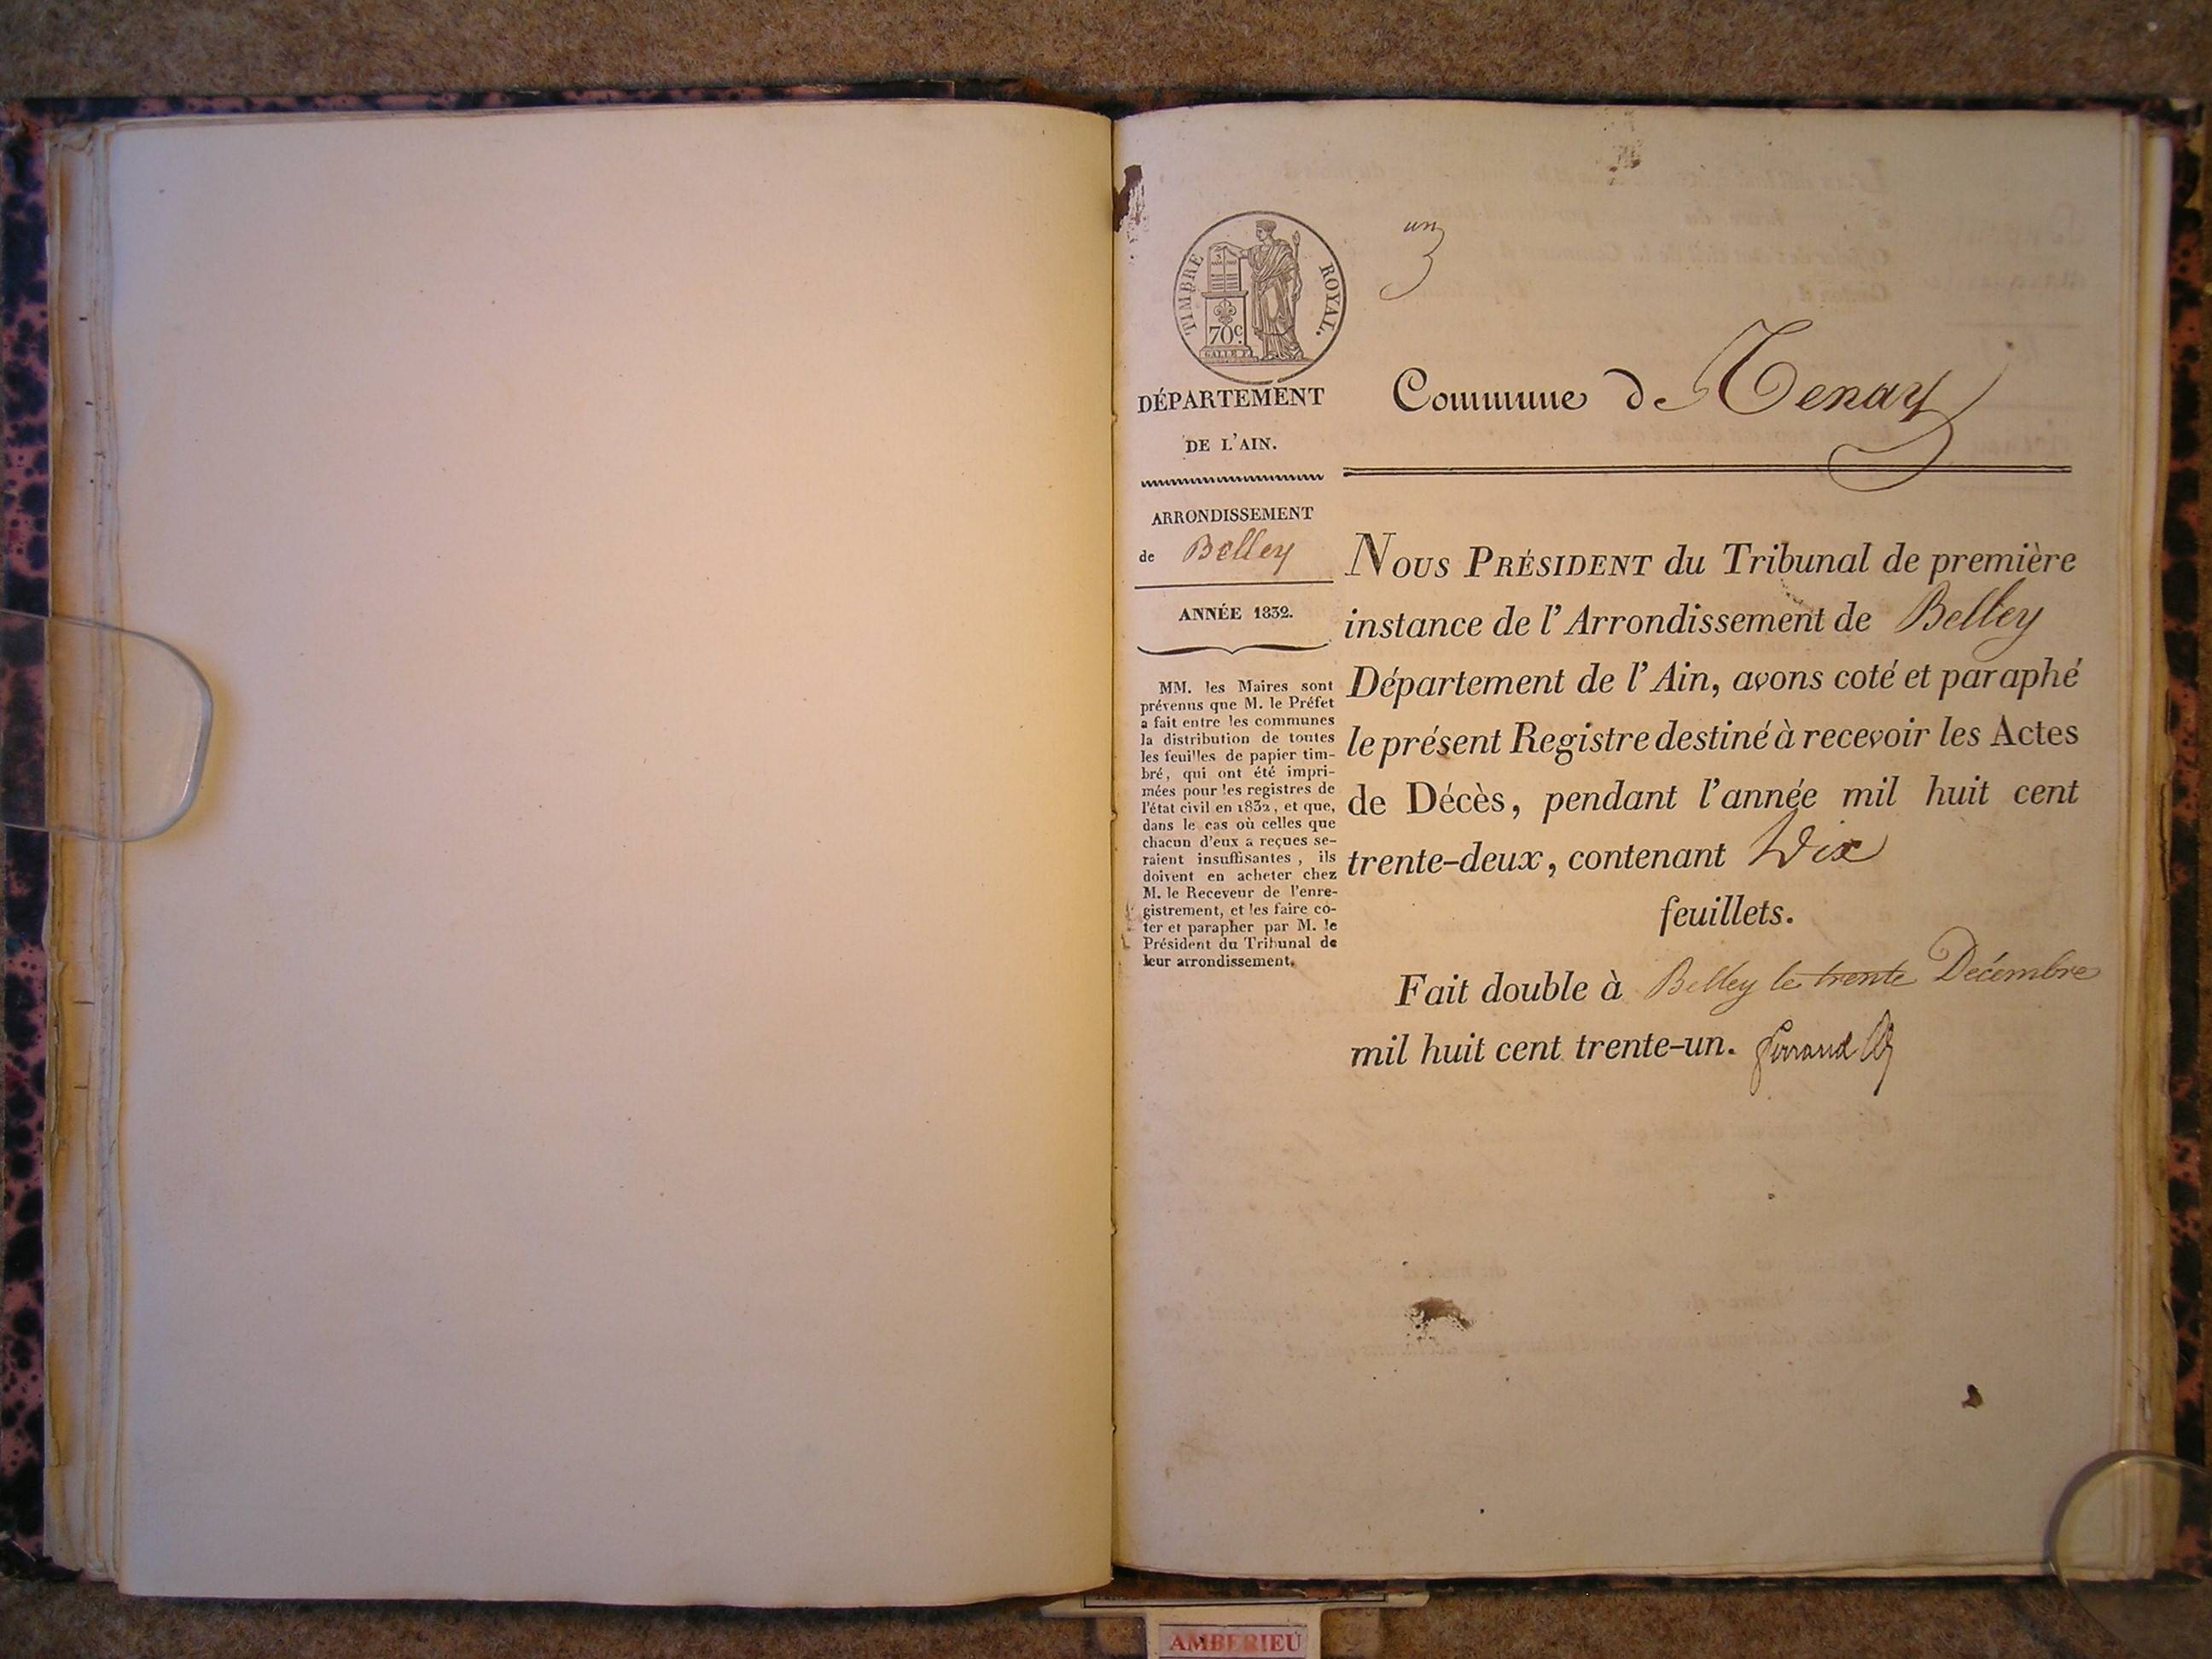 TIMBRE ROYAL.
70c.
GALLE F.
un
DÉPARTEMENT
DE L'AIN.
Commune de Tenay
ARRONDISSEMENT
de Belley
ANNÉE 1832.
MM. les Maires sont
prévenus que M. le Préfet
a fait entre les communes
la distribution de toutes
les feuilles de papier tim-
bré, qui ont été impri-
mées pour les registres de
l'état civil en 1832, et que,
dans le cas où celles que
chacun d'eux a reçues se-
raient insuffisantes, ils
doivent en acheter chez
M. le Receveur de l'enre-
gistrement, et les faire co-
ter et parapher par M. le
Président du Tribunal de
leur arrondissement.
NOUS PRÉSIDENT du Tribunal de première
instance de l'Arrondissement de Belley
Département de l'Ain, avons coté et paraphé
le présent Registre destiné à recevoir les Actes
de Décès, pendant l'année mil huit cent
trente-deux, contenant Dix
feuillets.
Fait double à Belley le trente Décembre
mil huit cent trente-un.
AMBERIEU